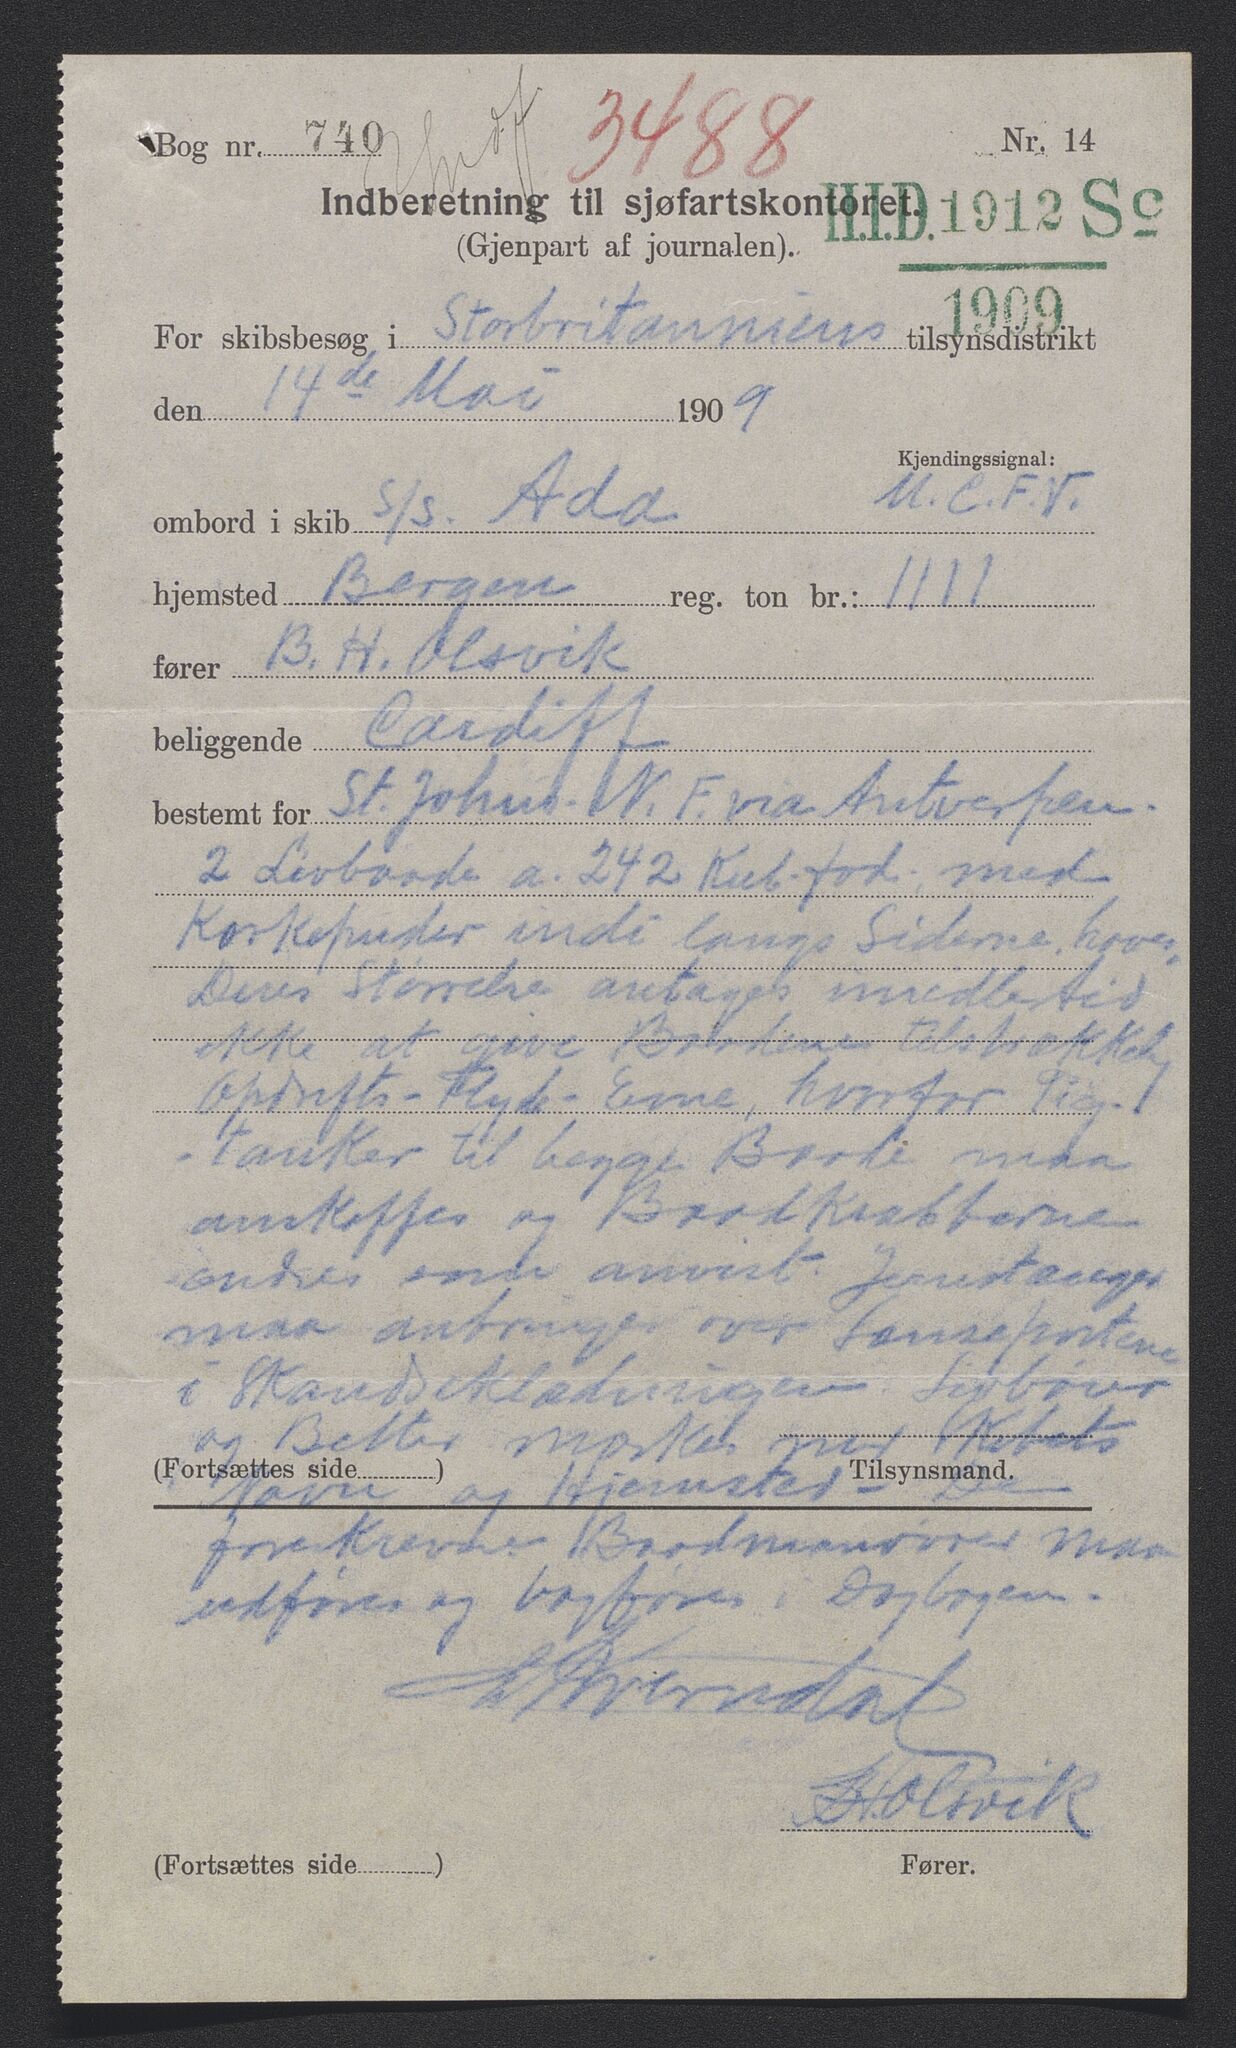 Bog nr. 740
3488
Nr. 14
Indberetning til sjøfartskontoret.
(Gjenpart af journalen).
H.I.D. 1912 Sc
1909
For skibsbesøg i Storbritanniens tilsynsdistrikt
den 14de Mai 1909
Kjendingssignal:
ombord i skib s/s. Ada M.C.F.V.
hjemsted Bergen reg. ton br.: 1111
fører B. H. Olsvik
beliggende Cardiff
bestemt for St. Johns. N. F. via Antverpen.
2 Livbaade a. 242 Kub. fod. med
Korkepuder indi langs Siderne, haves.
Deres Størrelse antages imidlertid
ikke at give Baadene tilstrækkelig
Opdrifts- Flyde- Evne, hvorfor
tanker til begge Baade maa
anskaffes og Baadkrabberne
endres som anvist. Jernstænger
maa anbringes over Lænseportene
i Skandseklædningen. Livbøier
og Belter mærkes med Skibets
(Fortsættes side ) Tilsynsmand.
Navn og Hjemsted - De
foreskrevne Baadmanøvrer maa
udføres og bogføres i Dagbogen.
Olsvik
(Fortsættes side ) Fører.